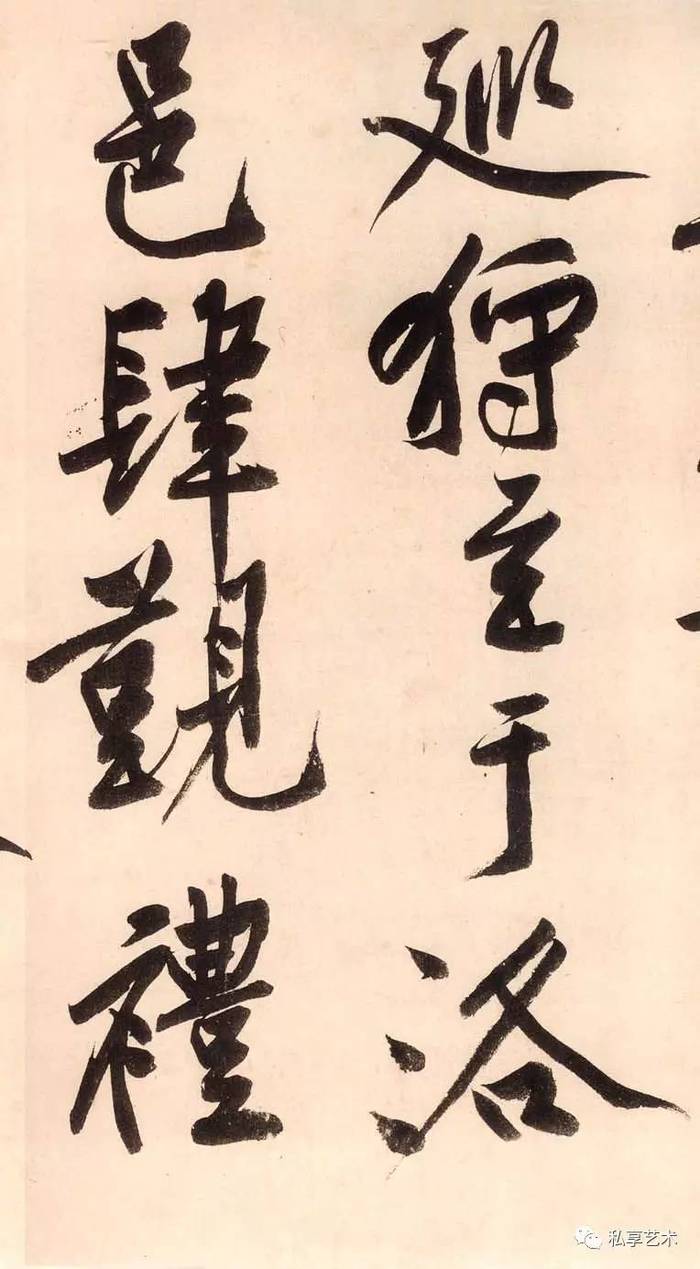 巡狩至于洛
邑肆覲禮
私享艺术